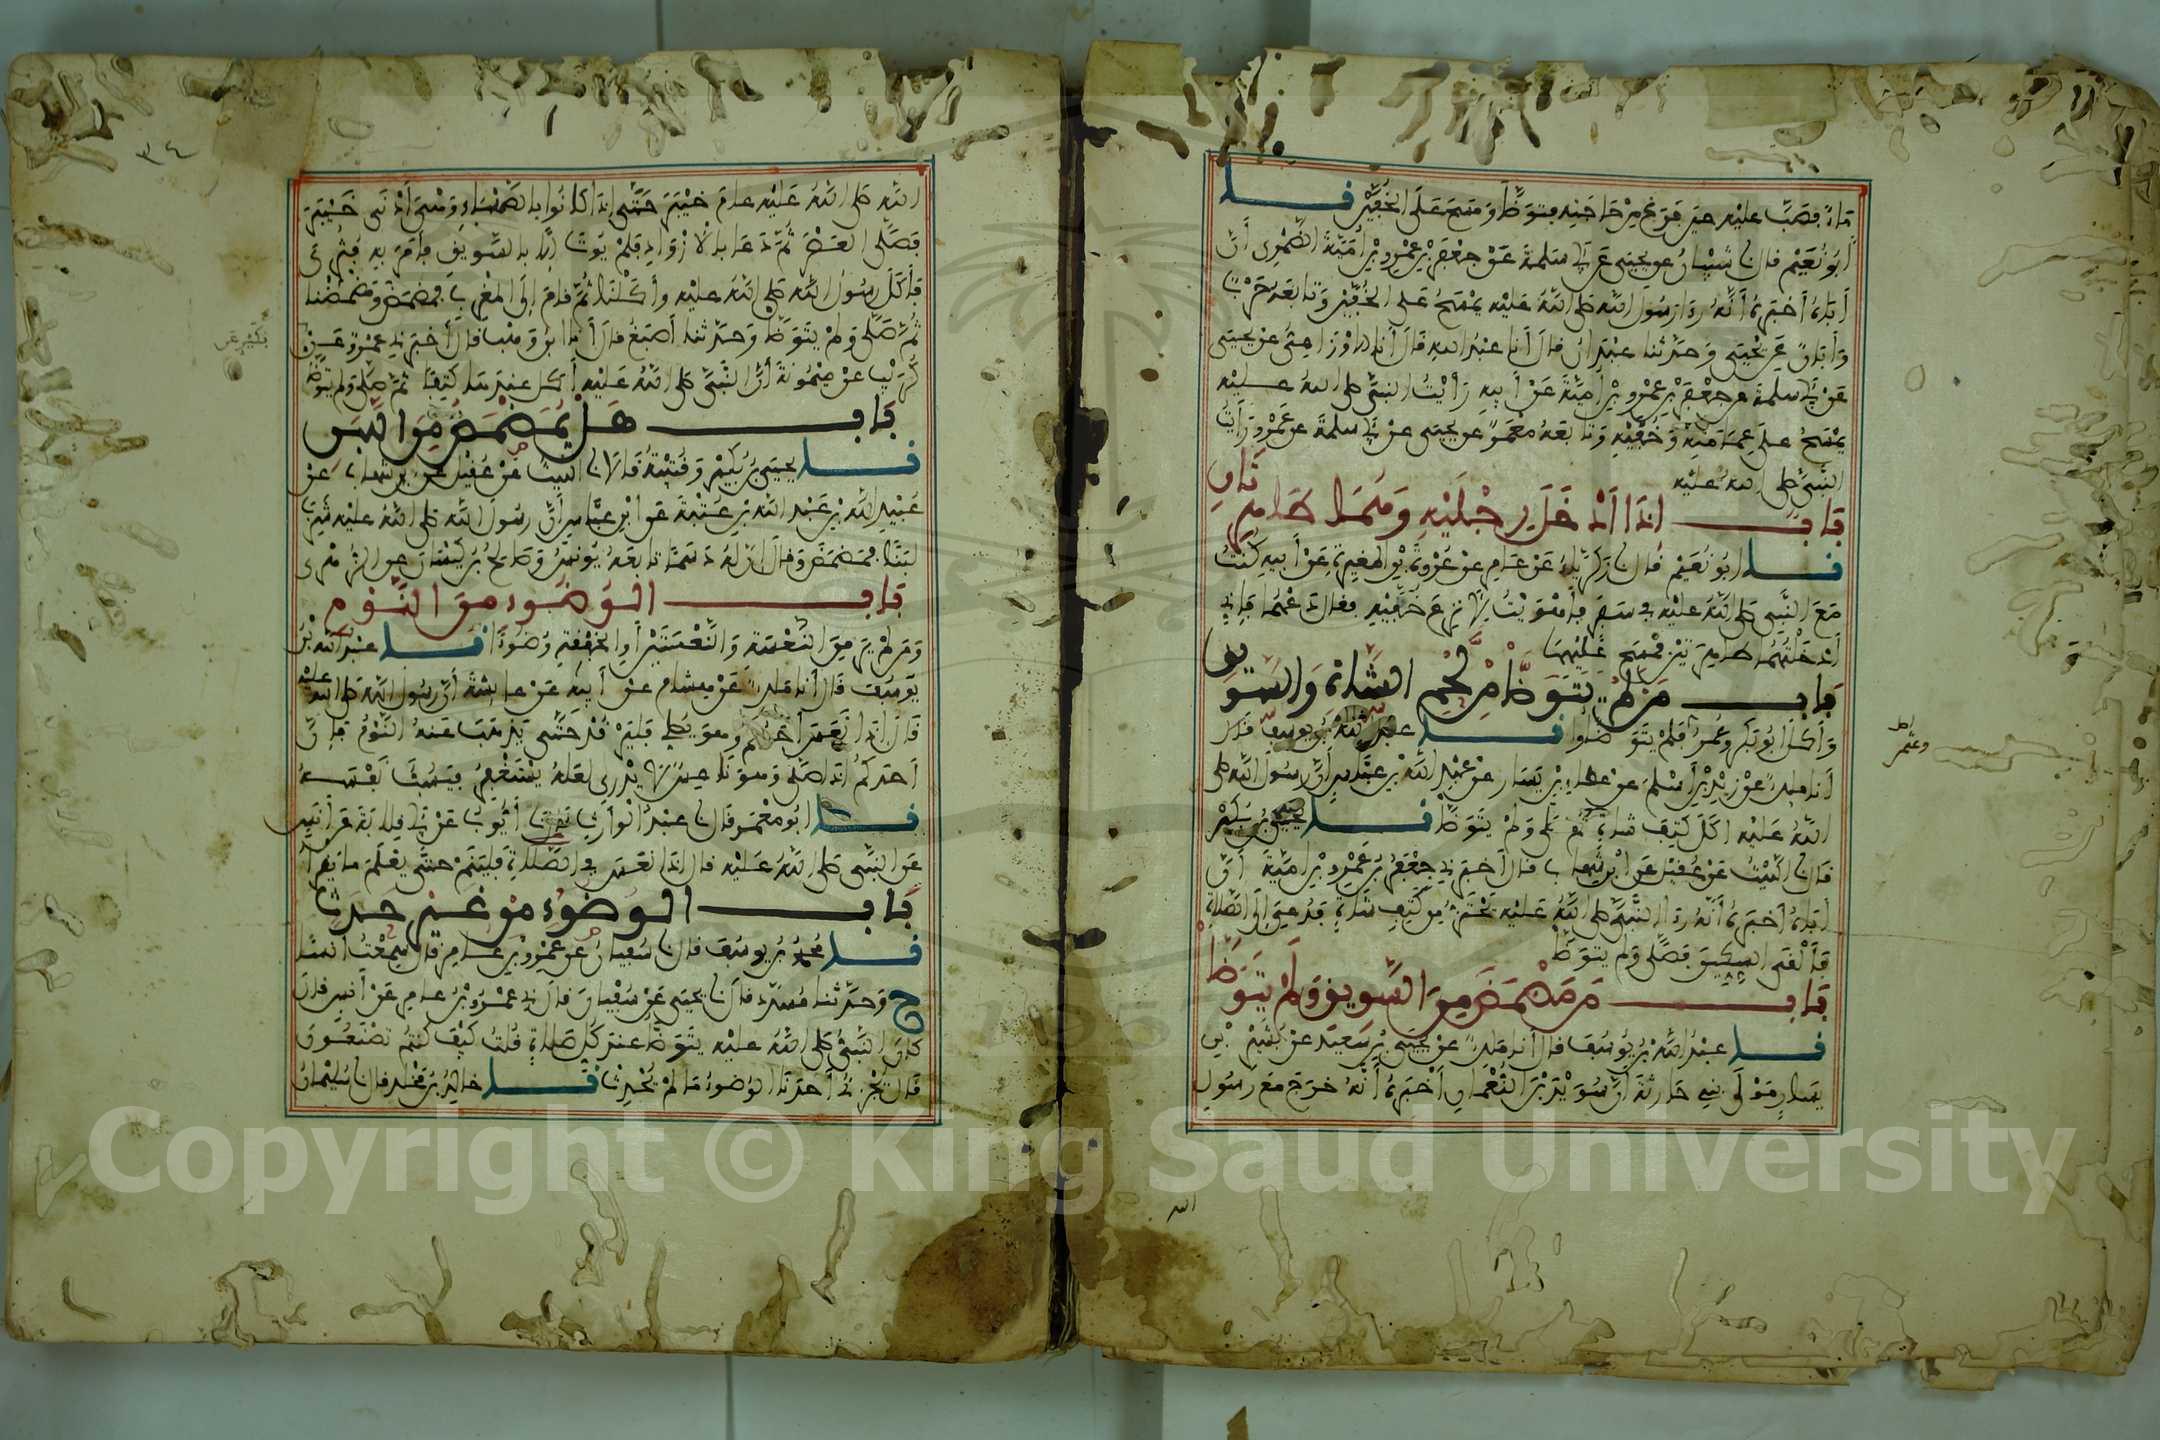 ماء فصب عليه حين فرغ من حاجته فتوضأ ومسح على الخفين
أبو نعيم قال نا شيبان عن يحيى عن أبي سلمة عن جعفر بن عمرو بن أمية الضمري أن
أباه أخبره أنه رءا رسول الله صلى الله عليه يمسح على الخفين وتابعه حرب
وأبان عن يحيى وحدثنا عبدان قال أنا عبد الله قال أنا الاوزاعي عن يحيى
عن أبي سلمة عن جعفر بن عمرو بن أمية عن أبيه رأيت النبي صلى الله عليه
يمسح على عمامته وخفيه وتابعه معمر عن يحيى عن أبي سلمة عن عمرو رأيت
النبي صلى الله عليه
باب إذا أدخل رجليه وهما طاهرتان
نا أبو نعيم قال نا زكرياء عن عامر عن عروة بن المغيرة عن أبيه كنت
مع النبي صلى الله عليه في سفر فأهويت لأنزع خفيه فقال دعهما فإني
أدخلتهما طاهرتين فمسح عليهما
باب من لم يتوضأ من لحم الشاة والسويق
وأكل أبو بكر وعمر فلم يتوضئوا نا عبد الله بن يوسف قال
وعثمن
أنا ملك عن زيد بن أسلم عن عطاء بن يسار عن عبد الله بن عباس أن رسول الله صلى
الله عليه أكل كتف شاة ثم صلى ولم يتوضأ نا يحيى بن بكير
قال نا الليث عن عقيل عن ابن شهاب قال أخبرني جعفر بن عمرو بن أمية أن
أباه أخبره أنه رءا النبي صلى الله عليه يحتز من كتف شاة فدعي إلى الصلاة
فألقى السكين فصلى ولم يتوضأ
باب من مضمض من السويق ولم يتوضأ
نا عبد الله بن يوسف قال أنا ملك عن يحيى بن سعيد عن بشير بن
يسار مولى بني حارثة أن سويد بن النعمان أخبره أنه خرج مع رسول
الله
٣٤
الله صلى الله عليه عام خيبر حتى إذا كانوا بالصهباء وهي أدنى خيبر
فصلى العصر ثم دعا بالأزواد فلم يوت إلا بالسويق فأمر به فثري
فأكل رسول الله صلى الله عليه وأكلنا ثم قام إلى المغرب فمضمض ومضمضنا
ثم صلى ولم يتوضأ وحدثنا أصبغ قال أنا ابن وهب قال أخبرني عمرو عن
بكير عن
كريب عن ميمونة أن النبي صلى الله عليه أكل عندها كتفا ثم صلى ولم يتوضأ
باب هل يمضمض من اللبن
نا يحيى بن بكير وقتيبة قالا نا الليث عن عقيل عن ابن شهاب عن
عبيد الله بن عبد الله بن عتبة عن ابن عباس أن رسول الله صلى الله عليه شرب
لبنا فمضمض وقال إن له دسما تابعه يونس وصالح بن كيسان عن الزهري
باب الوضوء من النوم
ومن لم ير من النعسة والنعستين أو الخفقة وضوءا نا عبد الله بن
يوسف قال أنا ملك عن هشام عن أبيه عن عائشة أن رسول الله صلى الله عليه
قال إذا نعس أحدكم وهو يصلي فليرقد حتى يذهب عنه النوم فإن
أحدكم إذا صلى وهو ناعس لا يدري لعله يستغفر فيسب نفسه
نا أبو معمر قال نا عبد الوارث نا أيوب عن أبي قلابة عن أنس
عن النبي صلى الله عليه قال إذا نعس في الصلاة فلينم حتى يعلم ما يقرأ
باب الوضوء من غير حدث
نا محمد بن يوسف قال نا سفيان عن عمرو بن عامر قال سمعت أنسا
ح وحدثنا مسدد قال نا يحيى عن سفيان قال ني عمرو بن عامر عن أنس قال
كان النبي صلى الله عليه يتوضأ عند كل صلاة قلت كيف كنتم تصنعون
قال يجزئ أحدنا الوضوء ما لم يحدث نا خالد بن مخلد قال نا سليمان
Copyright © King Saud University